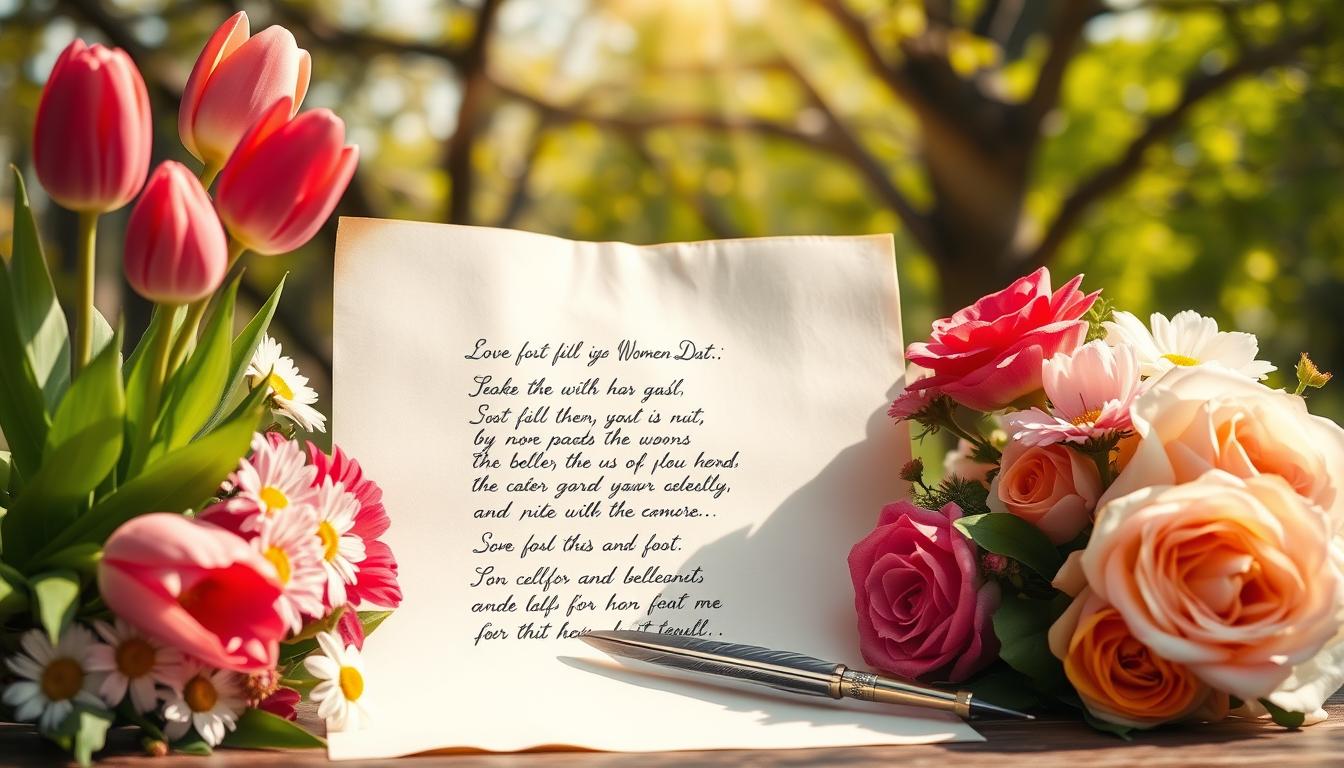 Love fort fill igo Women Dat.:
Teake the with har gasl,
Sost fall them, yost is nut,
by nove pacds the woons
the belles, the us of flou hend,
the cater gord yaur celestly,
and nite with the comore...
Sove fosl this and foot.
Son cellfor and belleants
ande lalf for hon feat me
foer thit